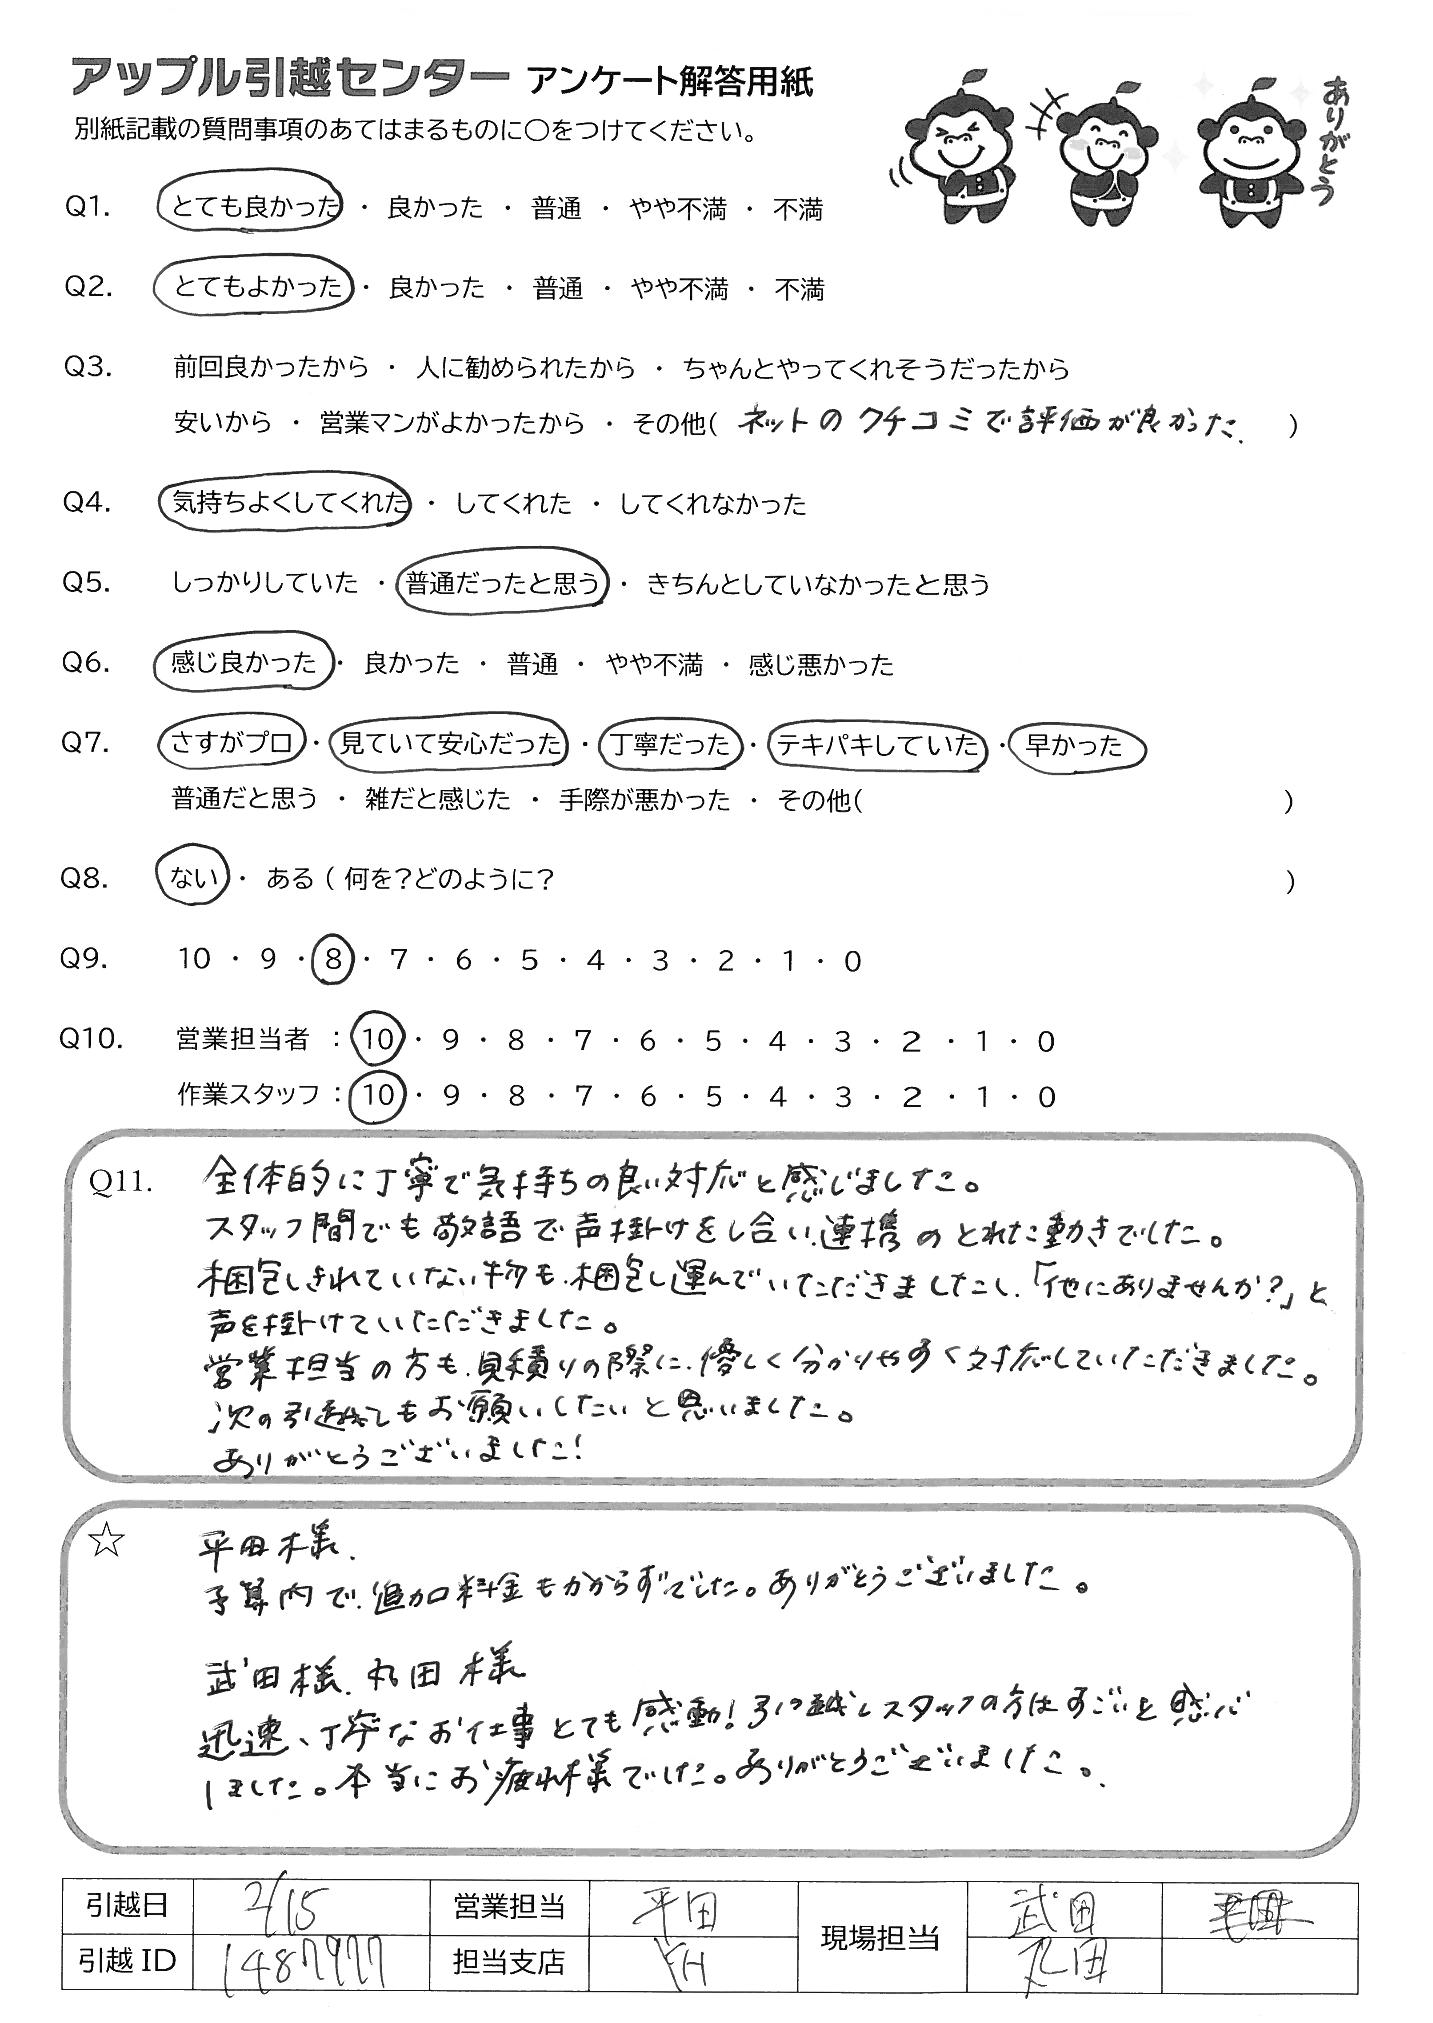 アップル引越センター アンケート解答用紙
別紙記載の質問事項のあてはまるものに〇をつけてください。
ありがとう
Q1. とても良かった ・ 良かった ・ 普通 ・ やや不満 ・ 不満
Q2. とてもよかった ・ 良かった ・ 普通 ・ やや不満 ・ 不満
Q3. 前回良かったから ・ 人に勧められたから ・ ちゃんとやってくれそうだったから
安いから ・ 営業マンがよかったから ・ その他( ネットのクチコミで評価が良かった、 )
Q4. 気持ちよくしてくれた ・ してくれた ・ してくれなかった
Q5. しっかりしていた ・ 普通だったと思う ・ きちんとしていなかったと思う
Q6. 感じ良かった ・ 良かった ・ 普通 ・ やや不満 ・ 感じ悪かった
Q7. さすがプロ ・ 見ていて安心だった ・ 丁寧だった ・ テキパキしていた ・ 早かった
普通だと思う ・ 雑だと感じた ・ 手際が悪かった ・ その他( )
Q8. ない ・ ある ( 何を?どのように? )
Q9. 10 ・ 9 ・ 8 ・ 7 ・ 6 ・ 5 ・ 4 ・ 3 ・ 2 ・ 1 ・ 0
Q10. 営業担当者 : 10 ・ 9 ・ 8 ・ 7 ・ 6 ・ 5 ・ 4 ・ 3 ・ 2 ・ 1 ・ 0
作業スタッフ : 10 ・ 9 ・ 8 ・ 7 ・ 6 ・ 5 ・ 4 ・ 3 ・ 2 ・ 1 ・ 0
Q11. 全体的に丁寧で気持ちの良い対応と感じました。
スタッフ間でも敬語で声掛けをし合い、連携のとれた動きでした。
梱包しきれていない物も、梱包し運んでいただきましたし、「他にありませんか?」と
声を掛けていただきました。
営業担当の方も、見積りの際に、優しく分かりやすく対応していただきました。
次の引越しもお願いしたいと思いました。
ありがとうございました!
☆ 平田様、
予算内で、追加料金もかからずでした。ありがとうございました。
武田様、丸田様
迅速、丁寧なお仕事とても感動!引っ越しスタッフの方はすごいと感じ
しました。本当にお疲れ様でした。ありがとうございました。
引越日 2/15 営業担当 平田 現場担当 武田
引越ID 1487977 担当支店 丸田